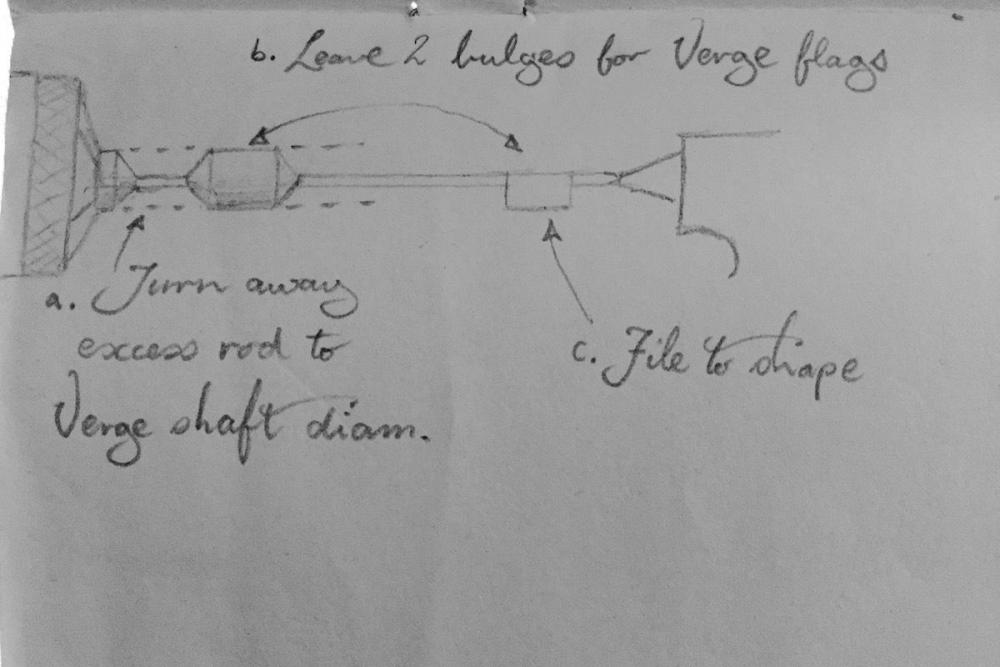 b. Leave 2 bulges for Verge flags
a. Turn away
excess rod to
Verge shaft diam.
c. File to shape